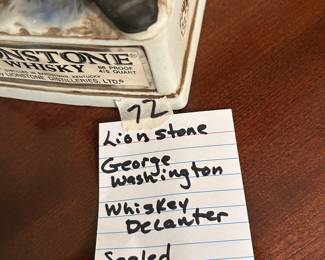 ONSTONE®
WHISKY
86 PROOF
4/5 QUART
LIONSTONE DISTILLERIES, LTD.
72
Lionstone
George
Washington
Whiskey
Decanter
Sealed